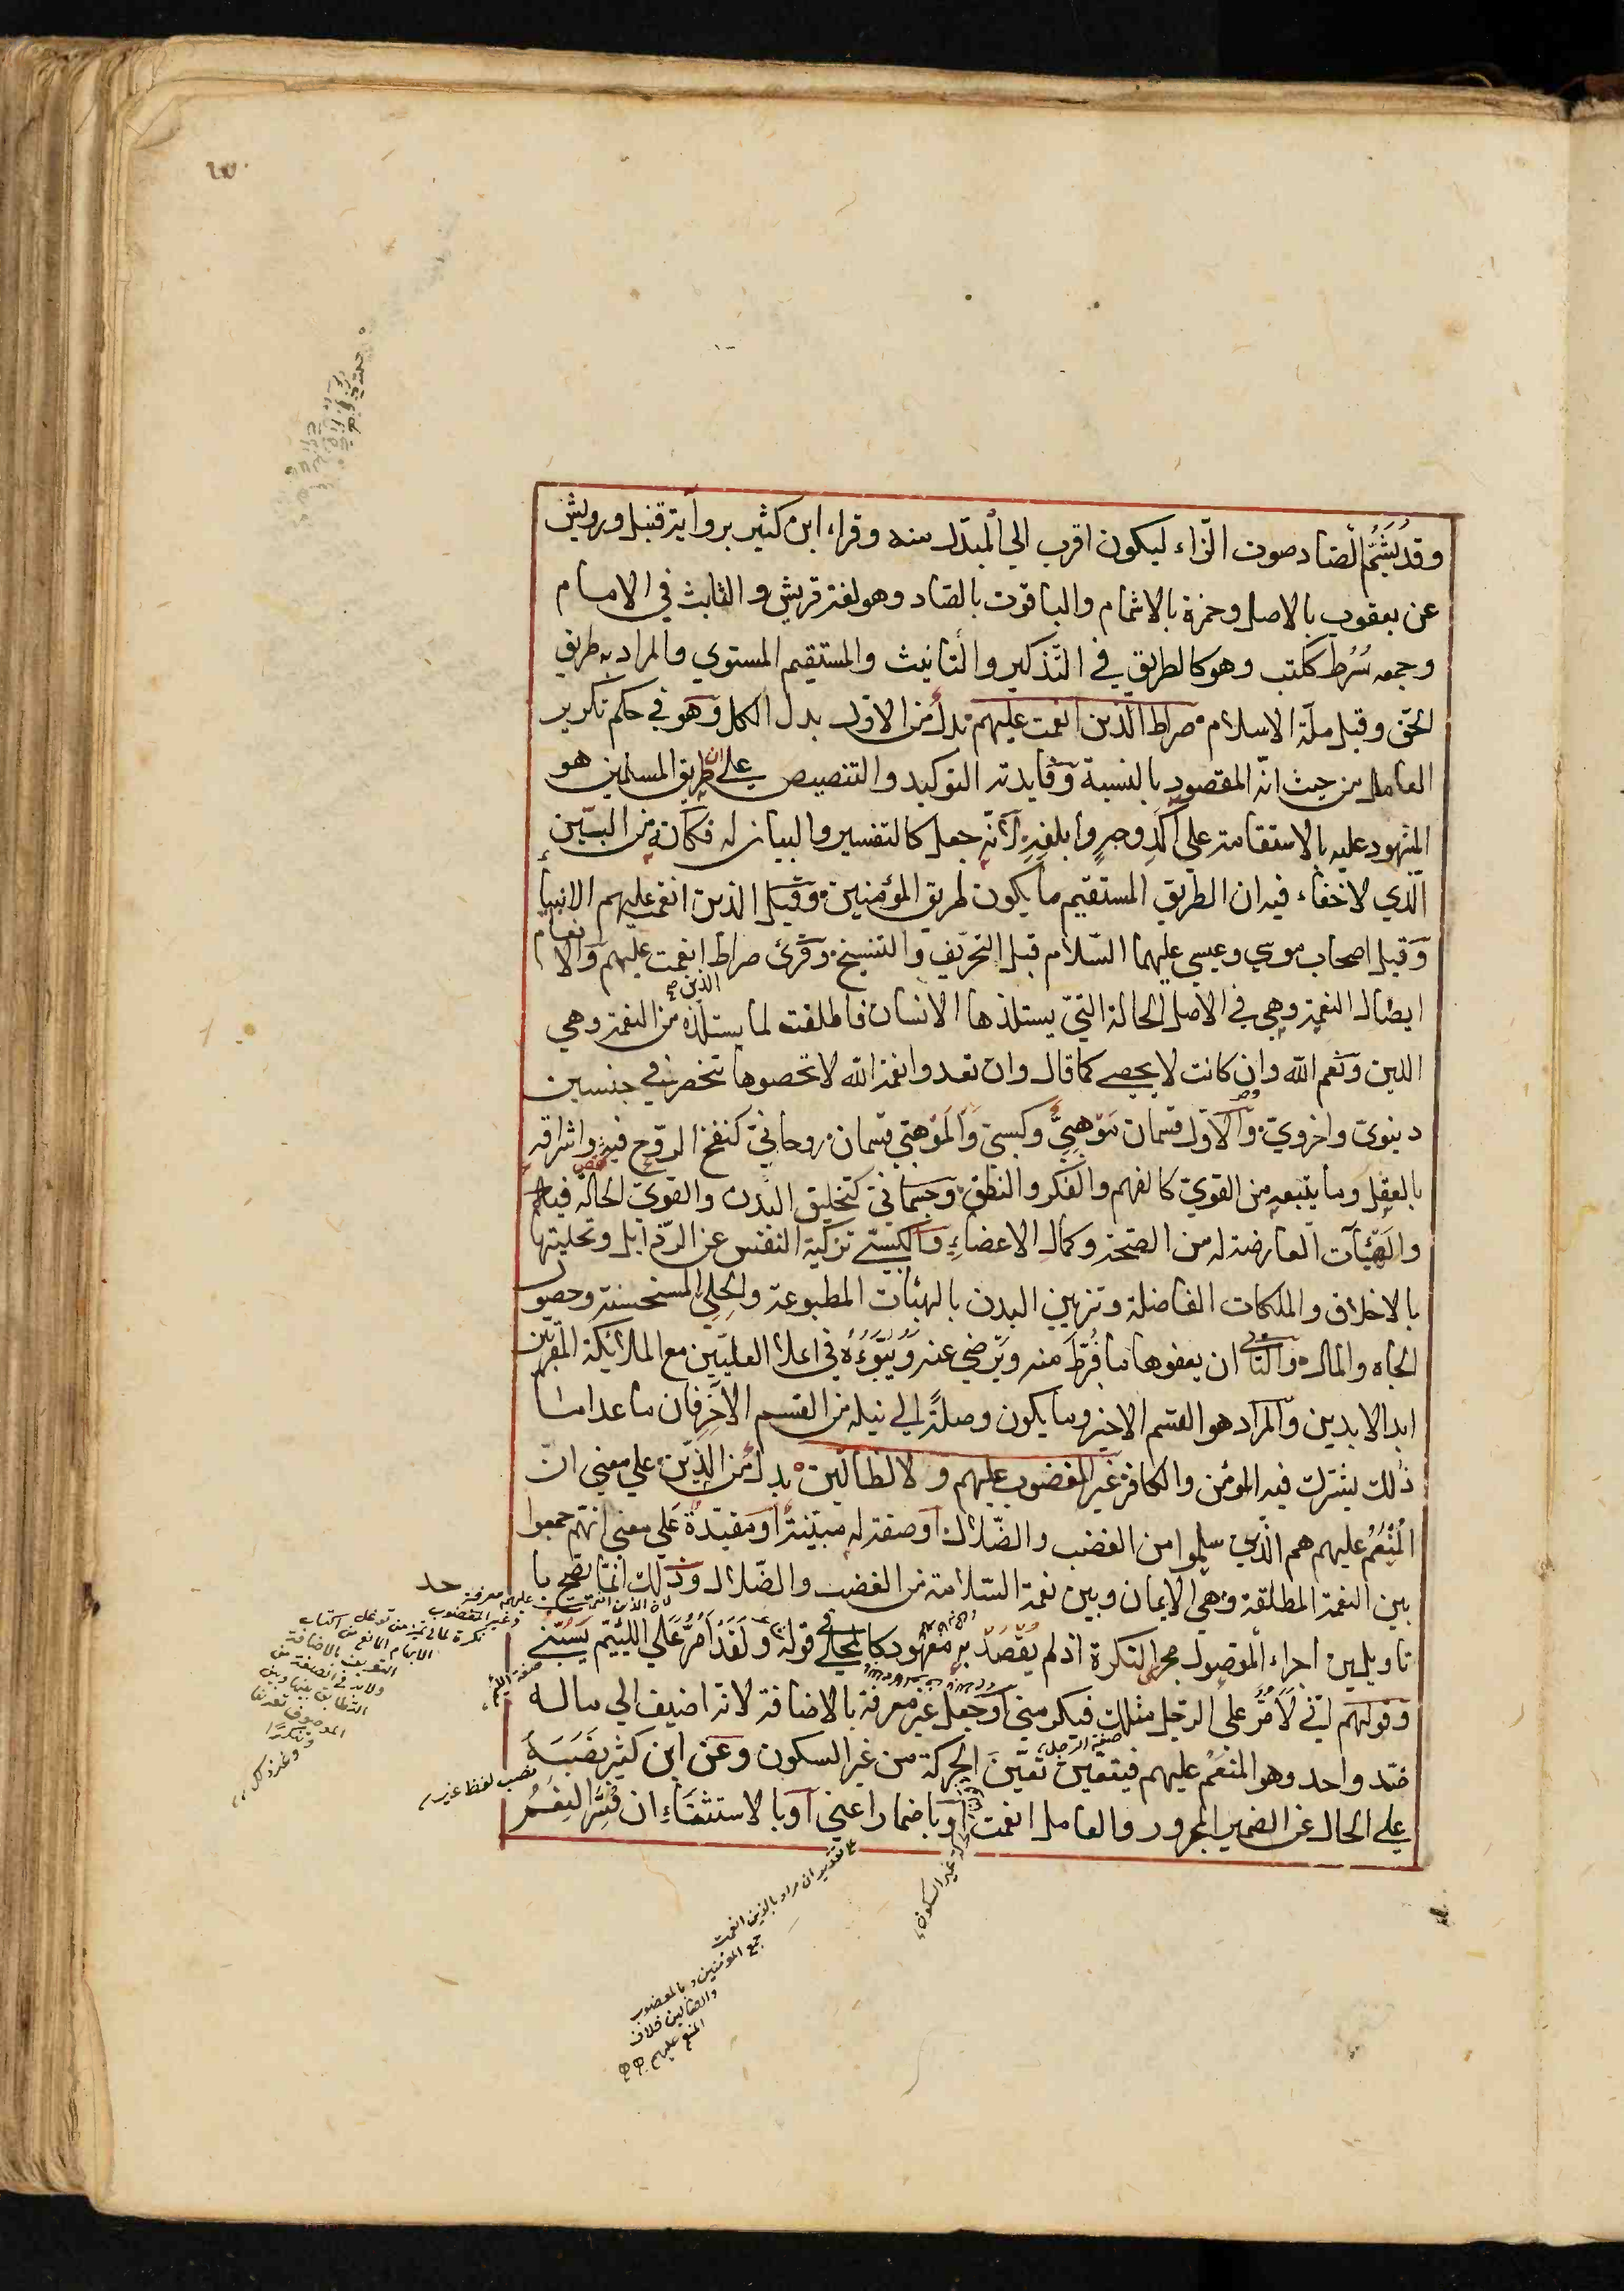 وقد يُشَمُّ الصّاد صوت الزّاء ليكون اقرب الي المبدّل منه وقراء ابن كثير برواية قنبل ورويش
عن يعقوب بالاصل وحمزة بالاشمام والباقون بالصاد وهو لغة قريش والثابت في الامام
وجمعه سُرُط ككتب وهو كالطريق في التذكير والتانيث والمستقيم المستوي والمراد به طريق
الحق وقيل ملّة الاسلام صراط الذين انعمت عليهم بدل من الاول بدل الكل وهو في حكم تكرير
العامل من حيث انّه المقصود بالنسبة وفايدته التوكيد والتنصيص علي ان طريق المسلمين هو
المشهود عليه بالاستقامة علي آكد وجه وابلغه لانّه جعل كالتفسير والبيان له فكانه من البيّن
الّذي لا خفاء فيه ان الطريق المستقيم ما يكون طريق المؤمنين وقيل الذين انعمت عليهم الانبيأ
وقيل اصحاب موسي وعيسي عليهما السّلام قبل التحريف والتنسيخ وقرئ صراط انعمت عليهم والانعام
الذين صح
ايصال النعمة وهي في الاصل الحالة التيّ يستلذها الانسان فاطلقت لما يستلذه من النعمة وهي
اللين ونعم الله وان كانت لا يحصي كما قال وان تعدوا نعمة الله لا تحصوها تنحصر في جنسين
دنيوي واخروي والاول قسمان مَوْهِبِيٌّ وكسبي والموهبي قسمان روحاني كنفخ الروّح فيه واشراقه
بالعقل وما يتبعه من القوي كالفهم والفكر والنطق وجسماني كتخليق البدن والقوي الحالّة فيه
والهيئات العارضة له من الصحة وكمال الاعضاء والكسبي تزكية النفس عن الرذايل وتحليتها
بالاخلاق والملكات الفاضلة وتزيين البدن بالهيئات المطبوعة والحلي المستحسنة وحصول
الجاه والمال والثاني ان يعفو ما فُرّط منه ويرضي عنه ويُبَوّءُه في اعلا العليّين مع الملائكة المقربين
ابد الابدين والمراد هو القسم الاخير وما يكون وصلةً الي نيله من القسم الآخر فان ما عدا
ذلك يشترك فيه المؤمن والكافر غير المغضوب عليهم ولا لضالّين بدل من الذين علي معني انّ
المُنْعَم عليهم هم الذين سلموا من الغضب والضّلال او صفة له مبيّنة او مقيّدة علي معني انّهم جمعوا
بين النعمة المطلقة وهي الايمان وبين نعمة السّلامة من الغضب والضّلال وذلك انّما يصح با
تاويلين اجراء الموصول مجري النكرة اذ لم يُقْصَدْ به معهود كالمحلي في قوله ولقد اَمُرُّ علي اللئيم يَسُبُّني
وقولهم انّي لَاَمُرُّ علي الرّجل مثلك فيكرمني او جعل غير معرفة بالاضافة لانّه اضيف الي ماله
ضد واحد وهو المنعَم عليهم فيتعيّن تَعَيُّنَ الحركة من غير السكون وعَن ابن كثير نصبهُ
علي الحال عن الضمير المجرور والعامل انعمت او باضمار اعني او بالاستثناء ان فُسِّر النِعَمُ
حد
لان الذين انعمت عليهم معرفة
وغير المغضوب
نكرة
الابهام المانع من اكتساب
التعريف بالاضافة
ولابد في الصفة من
التطابق بينها وبين
الموصوف تعريفا
وتنكيرا
وغير ذلك
صفة اللئيم
صفة الرجل
نصب لفظ غير
غير السكون
علي تقدير ان مراد بالذين انعمت
جمع المؤمنين وبالمغضوب
والضالين خلاف
المنعم عليهم